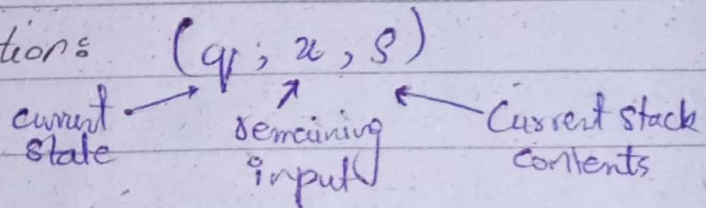 tion: (q, x, S)
current
state
remaining
input
Current Stack
Contents